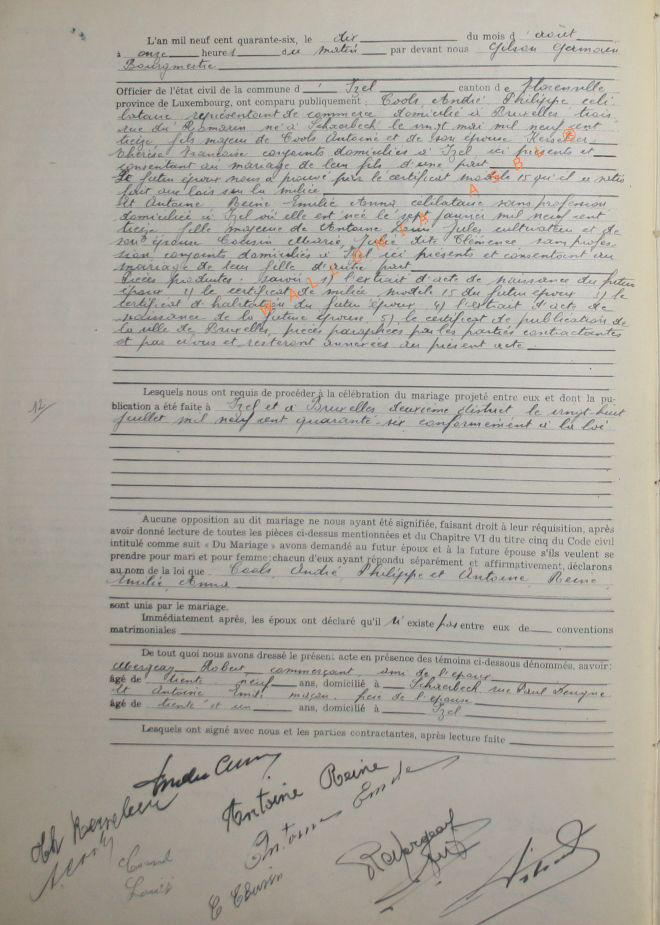 L'an mil neuf cent quarante-six, le dix du mois d'août
à onze heures du matin par devant nous Gilson Germain
Bourgmestre
Officier de l'état civil de la commune d'Izel canton de Florenville
province de Luxembourg, ont comparu publiquement: Cools, André Philippe céli
bataire représentant de commerce domicilié à Bruxelles trois,
rue du Romarin né à Schaerbeek le vingt mai mil neuf cent
treize fils majeur de Cools Antoine et de son épouse
Thérèse Françoise conjoints domiciliés à Izel ici présents et
consentant au mariage de leur fils d'une part
Le futur époux nous a prouvé par le certificat modèle 15 qu'il a satis
fait aux lois sur la milice
Et Antoine Reine Emilie Anna célibataire sans profession
domiciliée à Izel où elle est née le sept janvier mil neuf cent
treize fille majeure de Antoine Jules cultivateur et de
son épouse Cousin Marie, Julie dite Clémence, sans profes
sion conjoints domiciliés à Izel ici présents et consentant au
mariage de leur fille d'autre part
Pièces produites: savoir 1) l'extrait d'acte de naissance du futur
époux 2) le certificat de milice modèle 15 du futur époux 3) le
certificat d'habitation du futur époux, 4) l'extrait d'acte de
naissance de la future épouse, 5) le certificat de publication de
la ville de Bruxelles, pièces paraphées par les parties contractantes
et par nous et resteront annexées au présent acte
WALLONIA ASBL
Lesquels nous ont requis de procéder à la célébration du mariage projeté entre eux et dont la pu-
12
blication a été faite à Izel et à Bruxelles deuxième district, le vingt huit
juillet mil neuf cent quarante-six conformément à la loi
Aucune opposition au dit mariage ne nous ayant été signifiée, faisant droit à leur réquisition, après
avoir donné lecture de toutes les pièces ci-dessus mentionnées et du Chapitre VI du titre cinq du Code civil
intitulé comme suit « Du Mariage » avons demandé au futur époux et à la future épouse s'ils veulent se
prendre pour mari et pour femme; chacun d'eux ayant répondu séparément et affirmativement, déclarons
au nom de la loi que Cools, André Philippe et Antoine, Reine
Emilie, Anna
sont unis par le mariage.
Immédiatement après, les époux ont déclaré qu'il n'existe pas entre eux de conventions
matrimoniales
De tout quoi nous avons dressé le présent acte en présence des témoins ci-dessous dénommés, savoir:
Robert, commerçant, ami de l'époux
âgé de trente neuf ans, domicilié à Schaerbeek rue Paul
Et Antoine Emile maçon, frère de l'épouse
âgé de trente et un ans, domicilié à Izel
Lesquels ont signé avec nous et les parties contractantes, après lecture faite
Antoine Reine
Antoine Emile
C Cousin